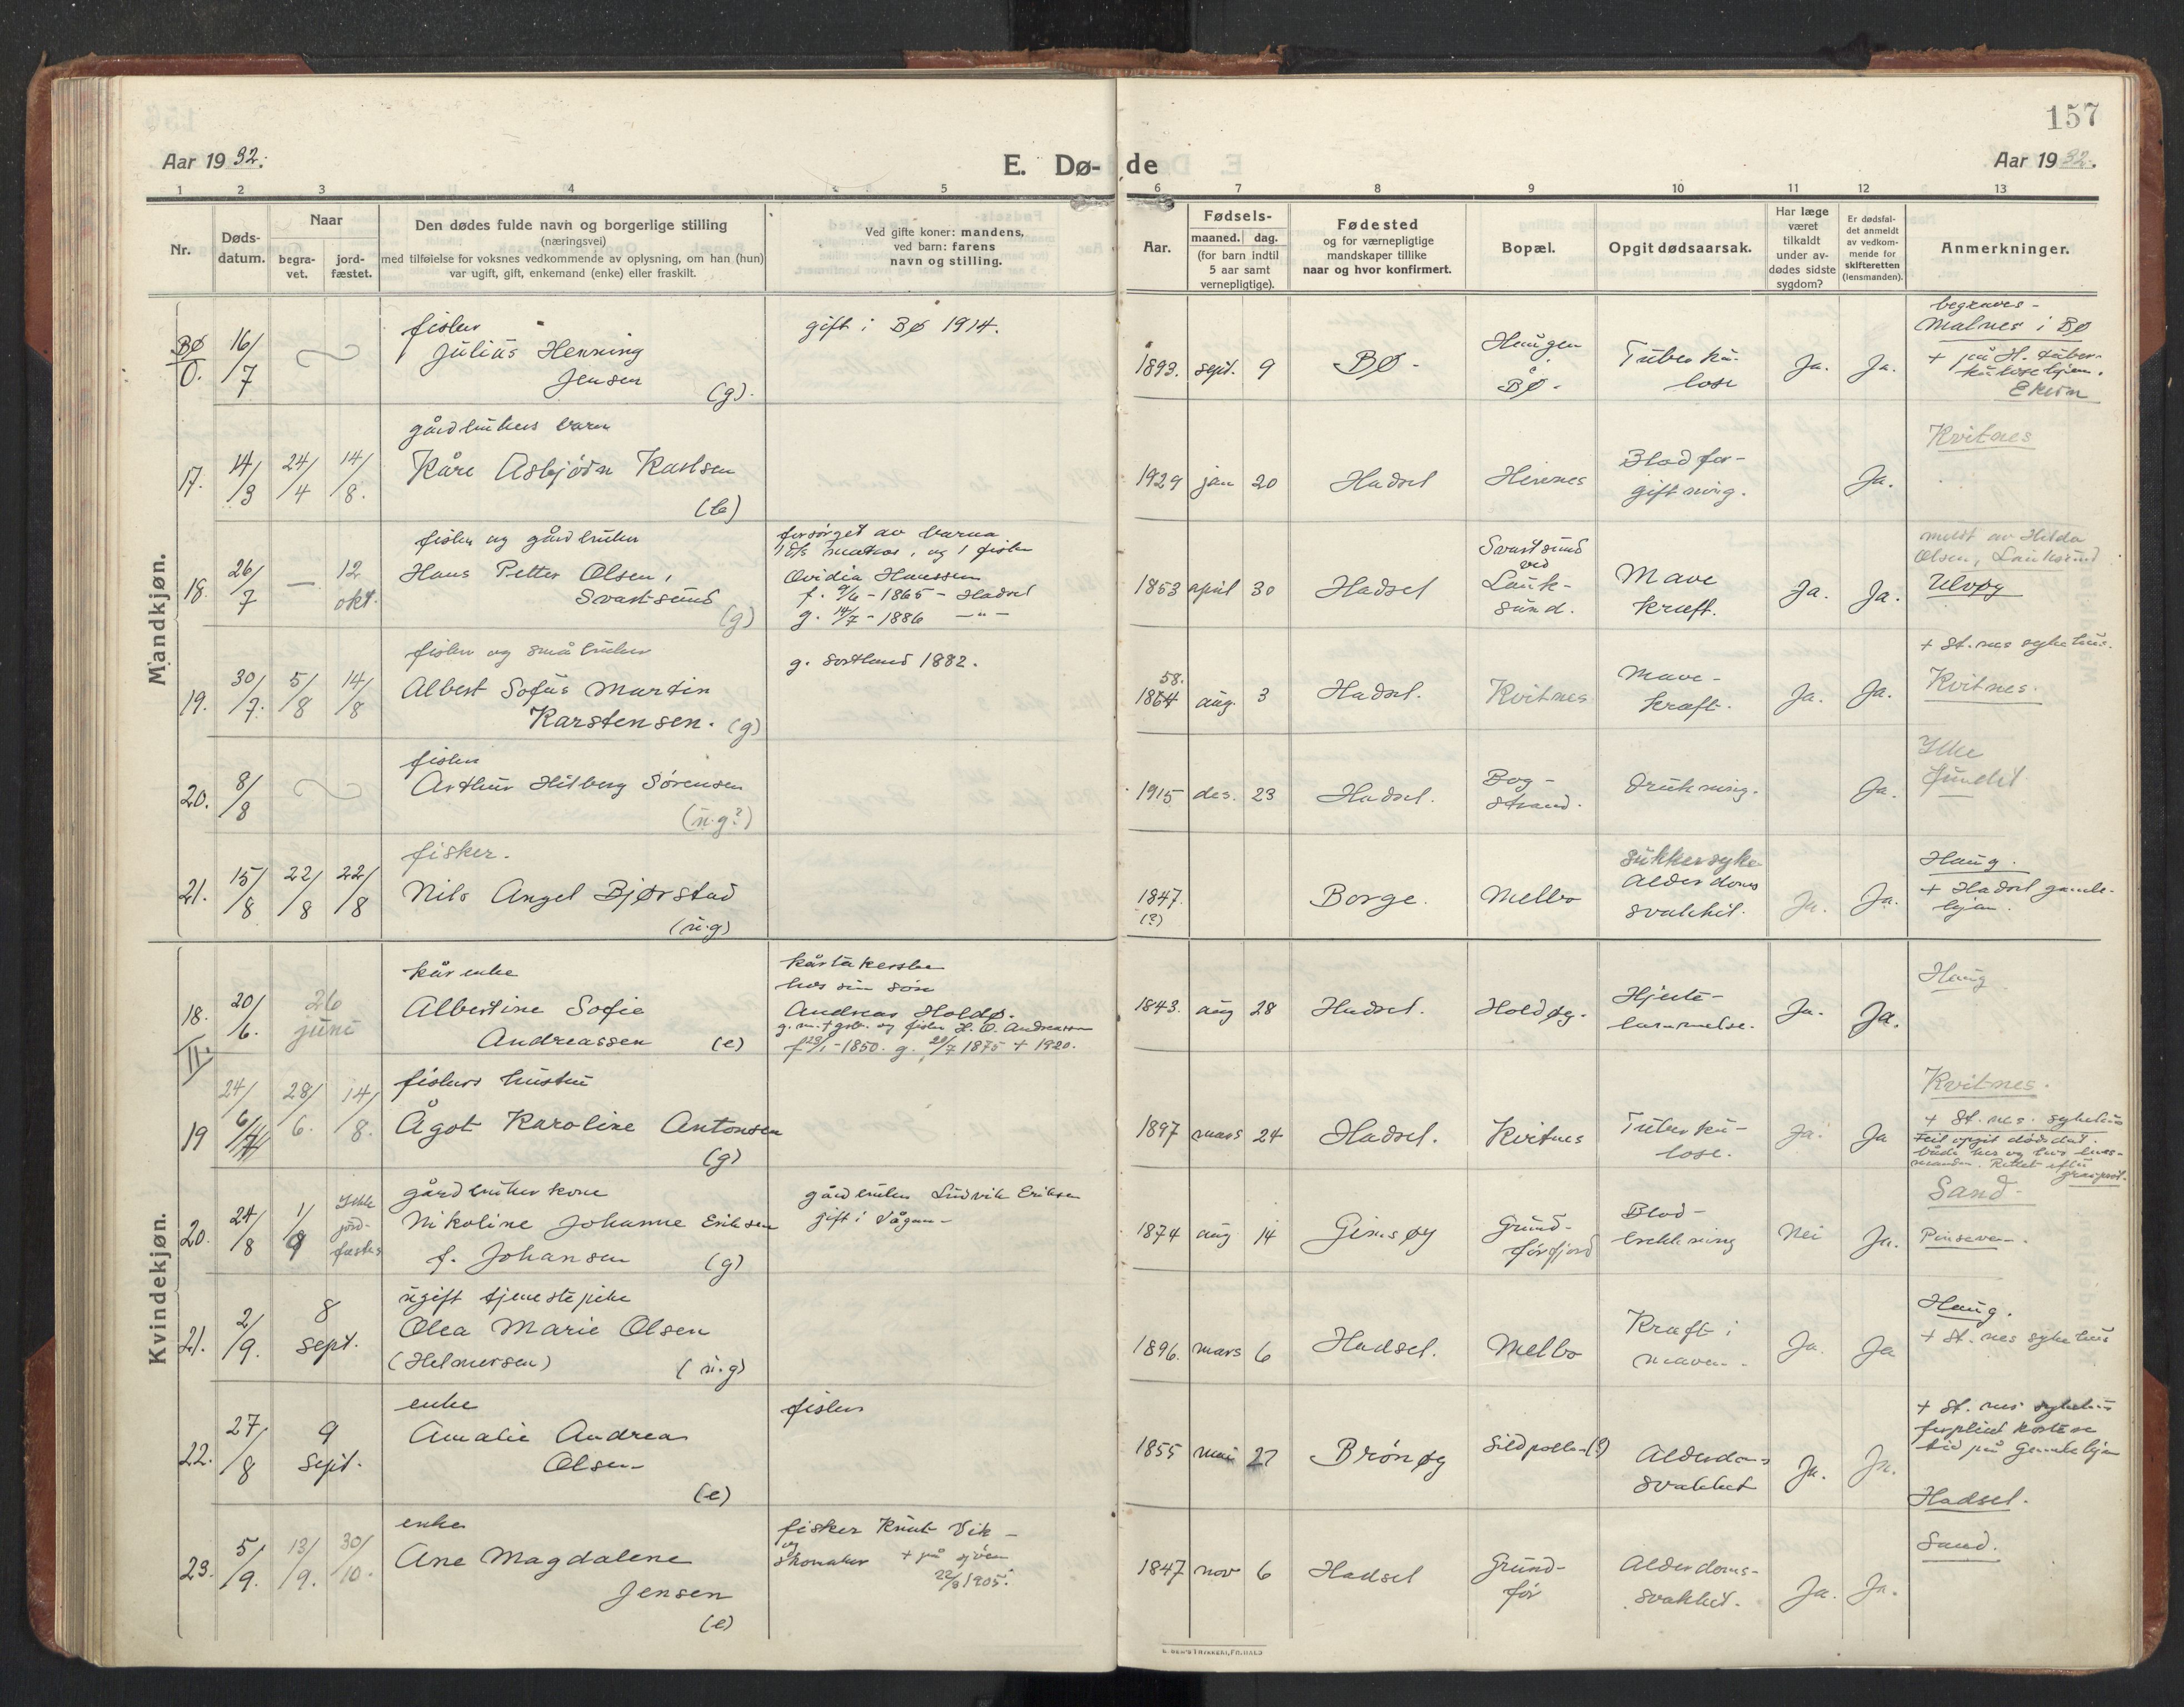 157
Aar 1932.
E. Dø-
de
Aar 1932.
1 2 3 4 5 6 7 8 9 10 11 12 13
Nr.
Døds-
datum.
Naar
begra-
vet.
jord-
fæstet.
Den dødes fulde navn og borgerlige stilling
(næringsvei)
med tilføielse for voksnes vedkommende av oplysning, om han (hun)
var ugift, gift, enkemand (enke) eller fraskilt.
Ved gifte koner: mandens,
ved barn: farens
navn og stilling.
Aar.
Fødsels-
maaned. dag.
(for barn indtil
5 aar samt
vernepligtige).
Fødested
og for værnepligtige
mandskaper tillike
naar og hvor konfirmert.
Bopæl.
Opgit dødsaarsak.
Har læge
været
tilkaldt
under av-
dødes sidste
sygdom?
Er dødsfal-
det anmeldt
av vedkom-
mende for
skifteretten
(lensmanden).
Anmerkninger.
Mandkjøn.
BØ
0.
16/7
fisker
Julius Henning
Jensen
(g).
gift i BØ 1914.
1893. sept. 9
BØ -
Haugen
i
BØ -
Tuberku-
lose
Ja. Ja.
begraves -
Malnes i BØ
+ på H. tuber-
kulosehjem.
17. 14/3 24/4 14/8.
gårdbrukers barn
Kåre Asbjørn Karlsen
(b)
1929 jan 20
Hadsel
Blodfor-
giftning.
Ja.
Kvitnes
18. 26/7 — 12
okt.
fisker og gårdbruker
Hans Petter Olsen,
Svartsund
(g)
forsørget av barna
og 1 fisker
Ovidia Hanssen
f. 9/6 - 1865 - Hadsel
g. 14/7 - 1886 —"—
1853 april 30
Hadsel
Svartsund
ved
Lauk-
sund.
Mave
kræft.
Ja. Ja.
meldt av Hilda
Olsen, Lauksund
Ulvøy
19. 30/7. 5/8 14/8
fisker og småbruker
Albert Sofus Martin
Karstensen. (g)
g. Sortland 1882.
58.
1864 aug. 3
Hadsel.
Kvitnes
Mave-
kræft.
Ja. Ja.
+ St.nes sykehus.
Kvitnes.
20. 8/8
fisker
Arthur Hilberg Sørensen
(u.g?)
1915 des. 23
Hadsel.
Bog-
strand.
Drukning.
Ja.
Ikke
fundet
21. 15/8 22/8 22/8
fisker.
Nils Angel Bjørstad
(u.g)
1847.
(?)
Borge.
Melbo
Sukkersyke
Alderdoms
svakhet.
Ja. Ja.
Haug.
+ Hadsel gamle-
hjem.
Kvindekjøn.
18.
II.
20/6. 26
juni
kårenke
Albertine Sofie
Andreassen (e)
kårtakerske
hos sin søn
Andreas Holdø.
g.m. + gbr. og fisker H. O. Andreassen
f 29/1 - 1850. g. 20/7 1875 + 1920.
1843. aug 28
Hadsel.
Holdøy.
Hjerte-
lammelse.
Ja. Ja.
Haug
19 24/6 28/6. 14/8.
fiskers hustru
Ågot Karoline Antonsen
(g)
1897 mars 24
Hadsel.
Kvitnes
Tuberku-
lose.
Ja. Ja
Kvitnes.
+ St.nes. sykehus
Feil opgit dødsdat.
både her og hos lens-
manden. Rettet efter
20. 24/8 1/9 Ikke
jord-
fæstet
gårdbrukerkone
Nikoline Johanne Eriksen
f. Johansen (g)
gårdbruker Ludvik Eriksen
gift i Vågan -
1874 aug 14
Gimsøy
Grund-
førfjord
Blod-
brekkning
Nei Ja.
Sand -
Pinseven-.
21. 2/9. 8
sept.
ugift tjenestepike
Olea Marie Olsen
(Helmersen) (u.g)
1896. mars 6
Hadsel.
Melbo
Kræft i
maven.
Ja. Ja
Haug.
+ St.nes sykehus
22. 27/8 9
Sept.
enke
Amalie Andrea
Olsen
(e)
fisker
1855 mai 27
Brønøy
Sildpollen(?)
Alderdoms
svakhet
Ja. Ja.
+ St.nes sykehus
forpleiet kortere
tid på Gamlehjem
Hadsel.
23. 5/9. 13/9. 30/10.
enke
Ane Magdalene
Jensen
(e)
fisker Knut Vik -
og
skomaker + på sjøen
22/3 1905.
1847 nov 6
Hadsel
Grund-
før
Alderdoms-
svakhet.
Ja. Ja.
Sand.